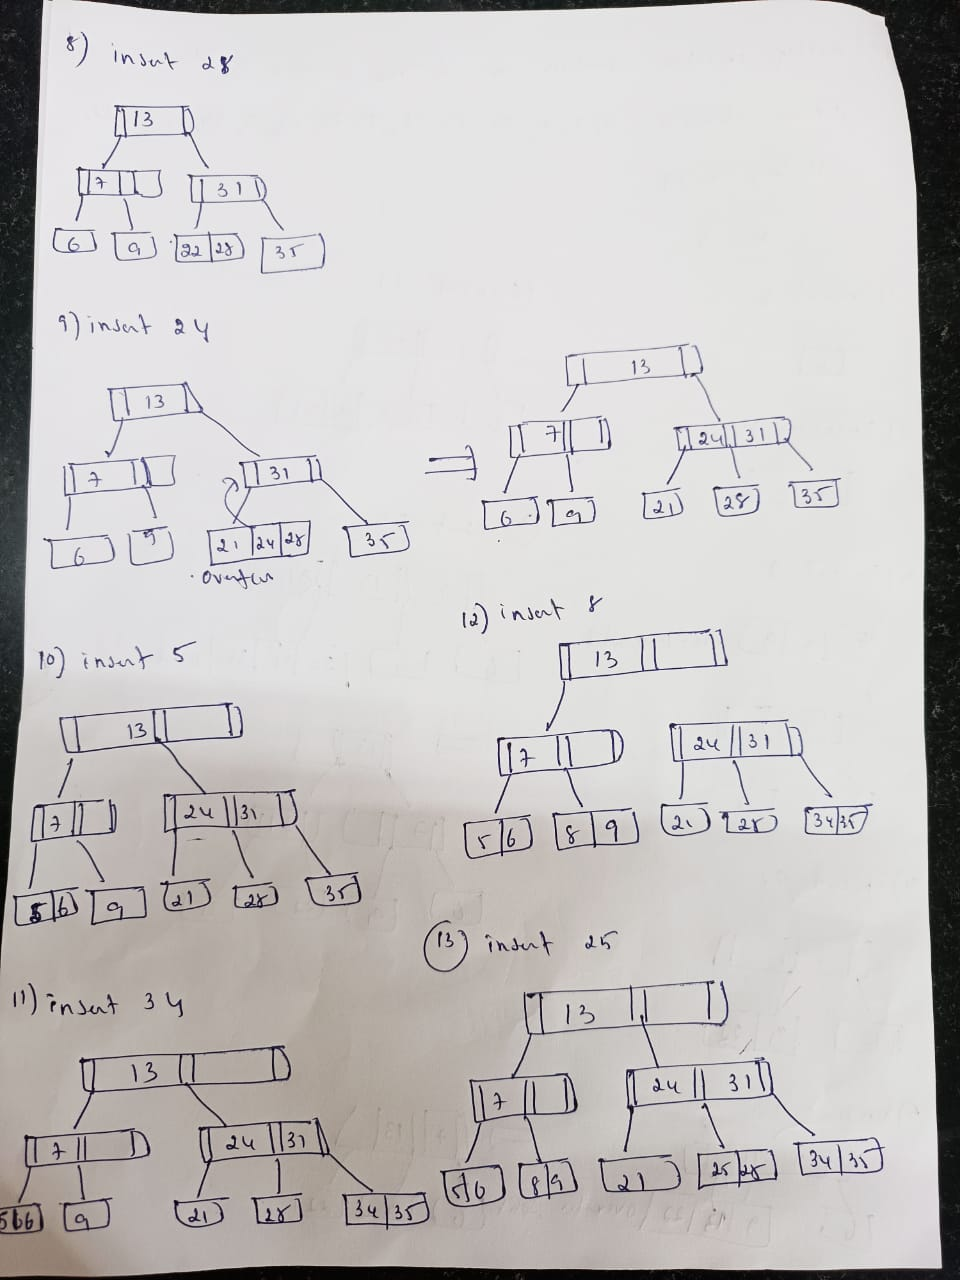 8) insert 28
13
7 31
6 9 22 28 35
9) insert 24
13
7 31
6 9 21 24 28 35
overflow
13
7 24 31
6 9 21 28 35
10) insert 5
13
7 24 31
5 6 9 21 28 35
11) insert 34
13
7 24 31
5 6 9 21 28 34 35
12) insert 8
13
7 24 31
5 6 8 9 21 28 34 35
13) insert 25
13
7 24 31
5 6 8 9 21 25 28 34 35